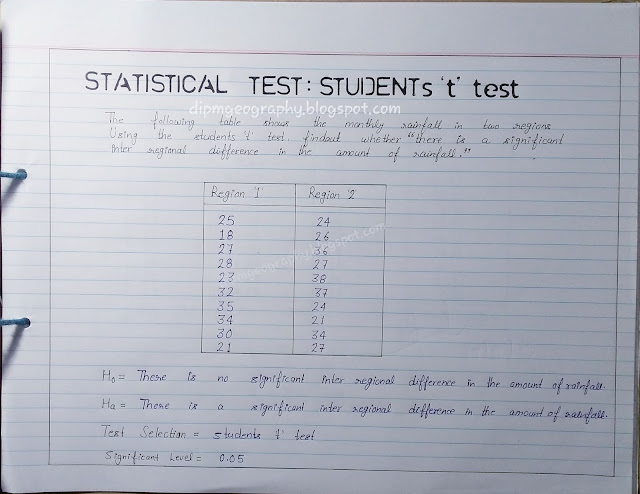 STATISTICAL TEST: STUDENTs 't' test
dipmgeography.blogspot.com
The following table shows the monthly rainfall in two regions
Using the students 't' test, findout whether "there is a significant
Inter regional difference in the amount of rainfall."
Region '1' Region '2'
25 24
18 26
27 36
28 27
23 38
32 37
35 24
34 21
30 34
21 27
dipmgeography.blogspot.com
H0 = There is no significant inter regional difference in the amount of rainfall.
Ha = There is a significant inter regional difference in the amount of rainfall.
Test Selection = students 't' test
Significant Level = 0.05